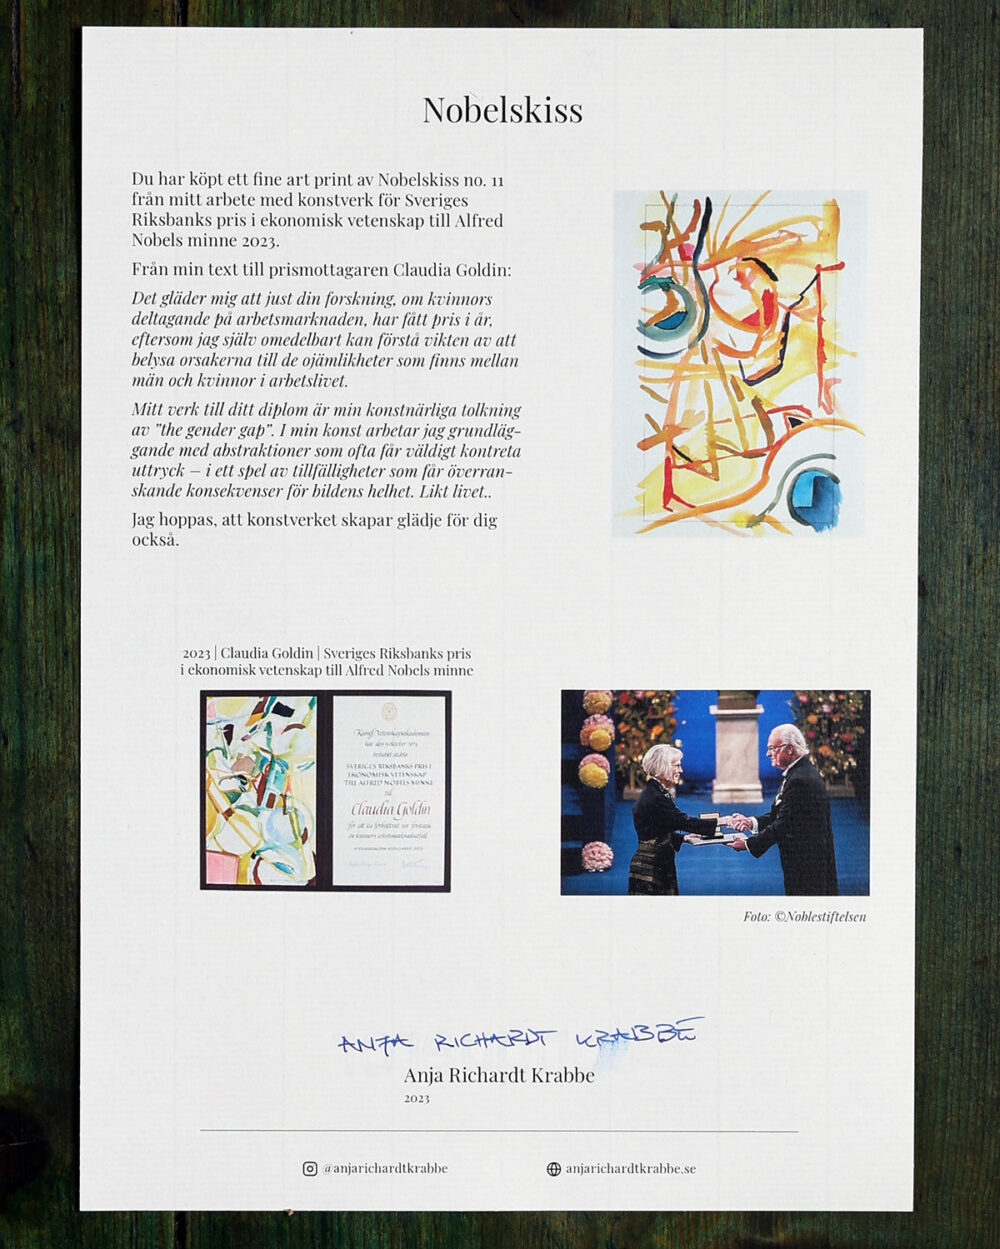 Nobelskiss
Du har köpt ett fine art print av Nobelskiss no. 11
från mitt arbete med konstverk för Sveriges
Riksbanks pris i ekonomisk vetenskap till Alfred
Nobels minne 2023.
Från min text till prismottagaren Claudia Goldin:
Det gläder mig att just din forskning, om kvinnors
deltagande på arbetsmarknaden, har fått pris i år,
eftersom jag själv omedelbart kan förstå vikten av att
belysa orsakerna till de ojämlikheter som finns mellan
män och kvinnor i arbetslivet.
Mitt verk till ditt diplom är min konstnärliga tolkning
av ”the gender gap”. I min konst arbetar jag grundläg-
gande med abstraktioner som ofta får väldigt kontreta
uttryck – i ett spel av tillfälligheter som får överran-
skande konsekvenser för bildens helhet. Likt livet..
Jag hoppas, att konstverket skapar glädje för dig
också.
2023 | Claudia Goldin | Sveriges Riksbanks pris
i ekonomisk vetenskap till Alfred Nobels minne
Kungl. Vetenskapsakademien
har den
beslutat utdela
SVERIGES RIKSBANKS PRIS I
EKONOMISK VETENSKAP
TILL ALFRED NOBELS MINNE
till
Claudia Goldin
för att ha förbättrat vår förståelse
av kvinnors arbetsmarknadsutfall
Foto: ©Noblestiftelsen
ANJA RICHARDT KRABBÉ
Anja Richardt Krabbe
2023
@anjarichardtkrabbe
anjarichardtkrabbe.se